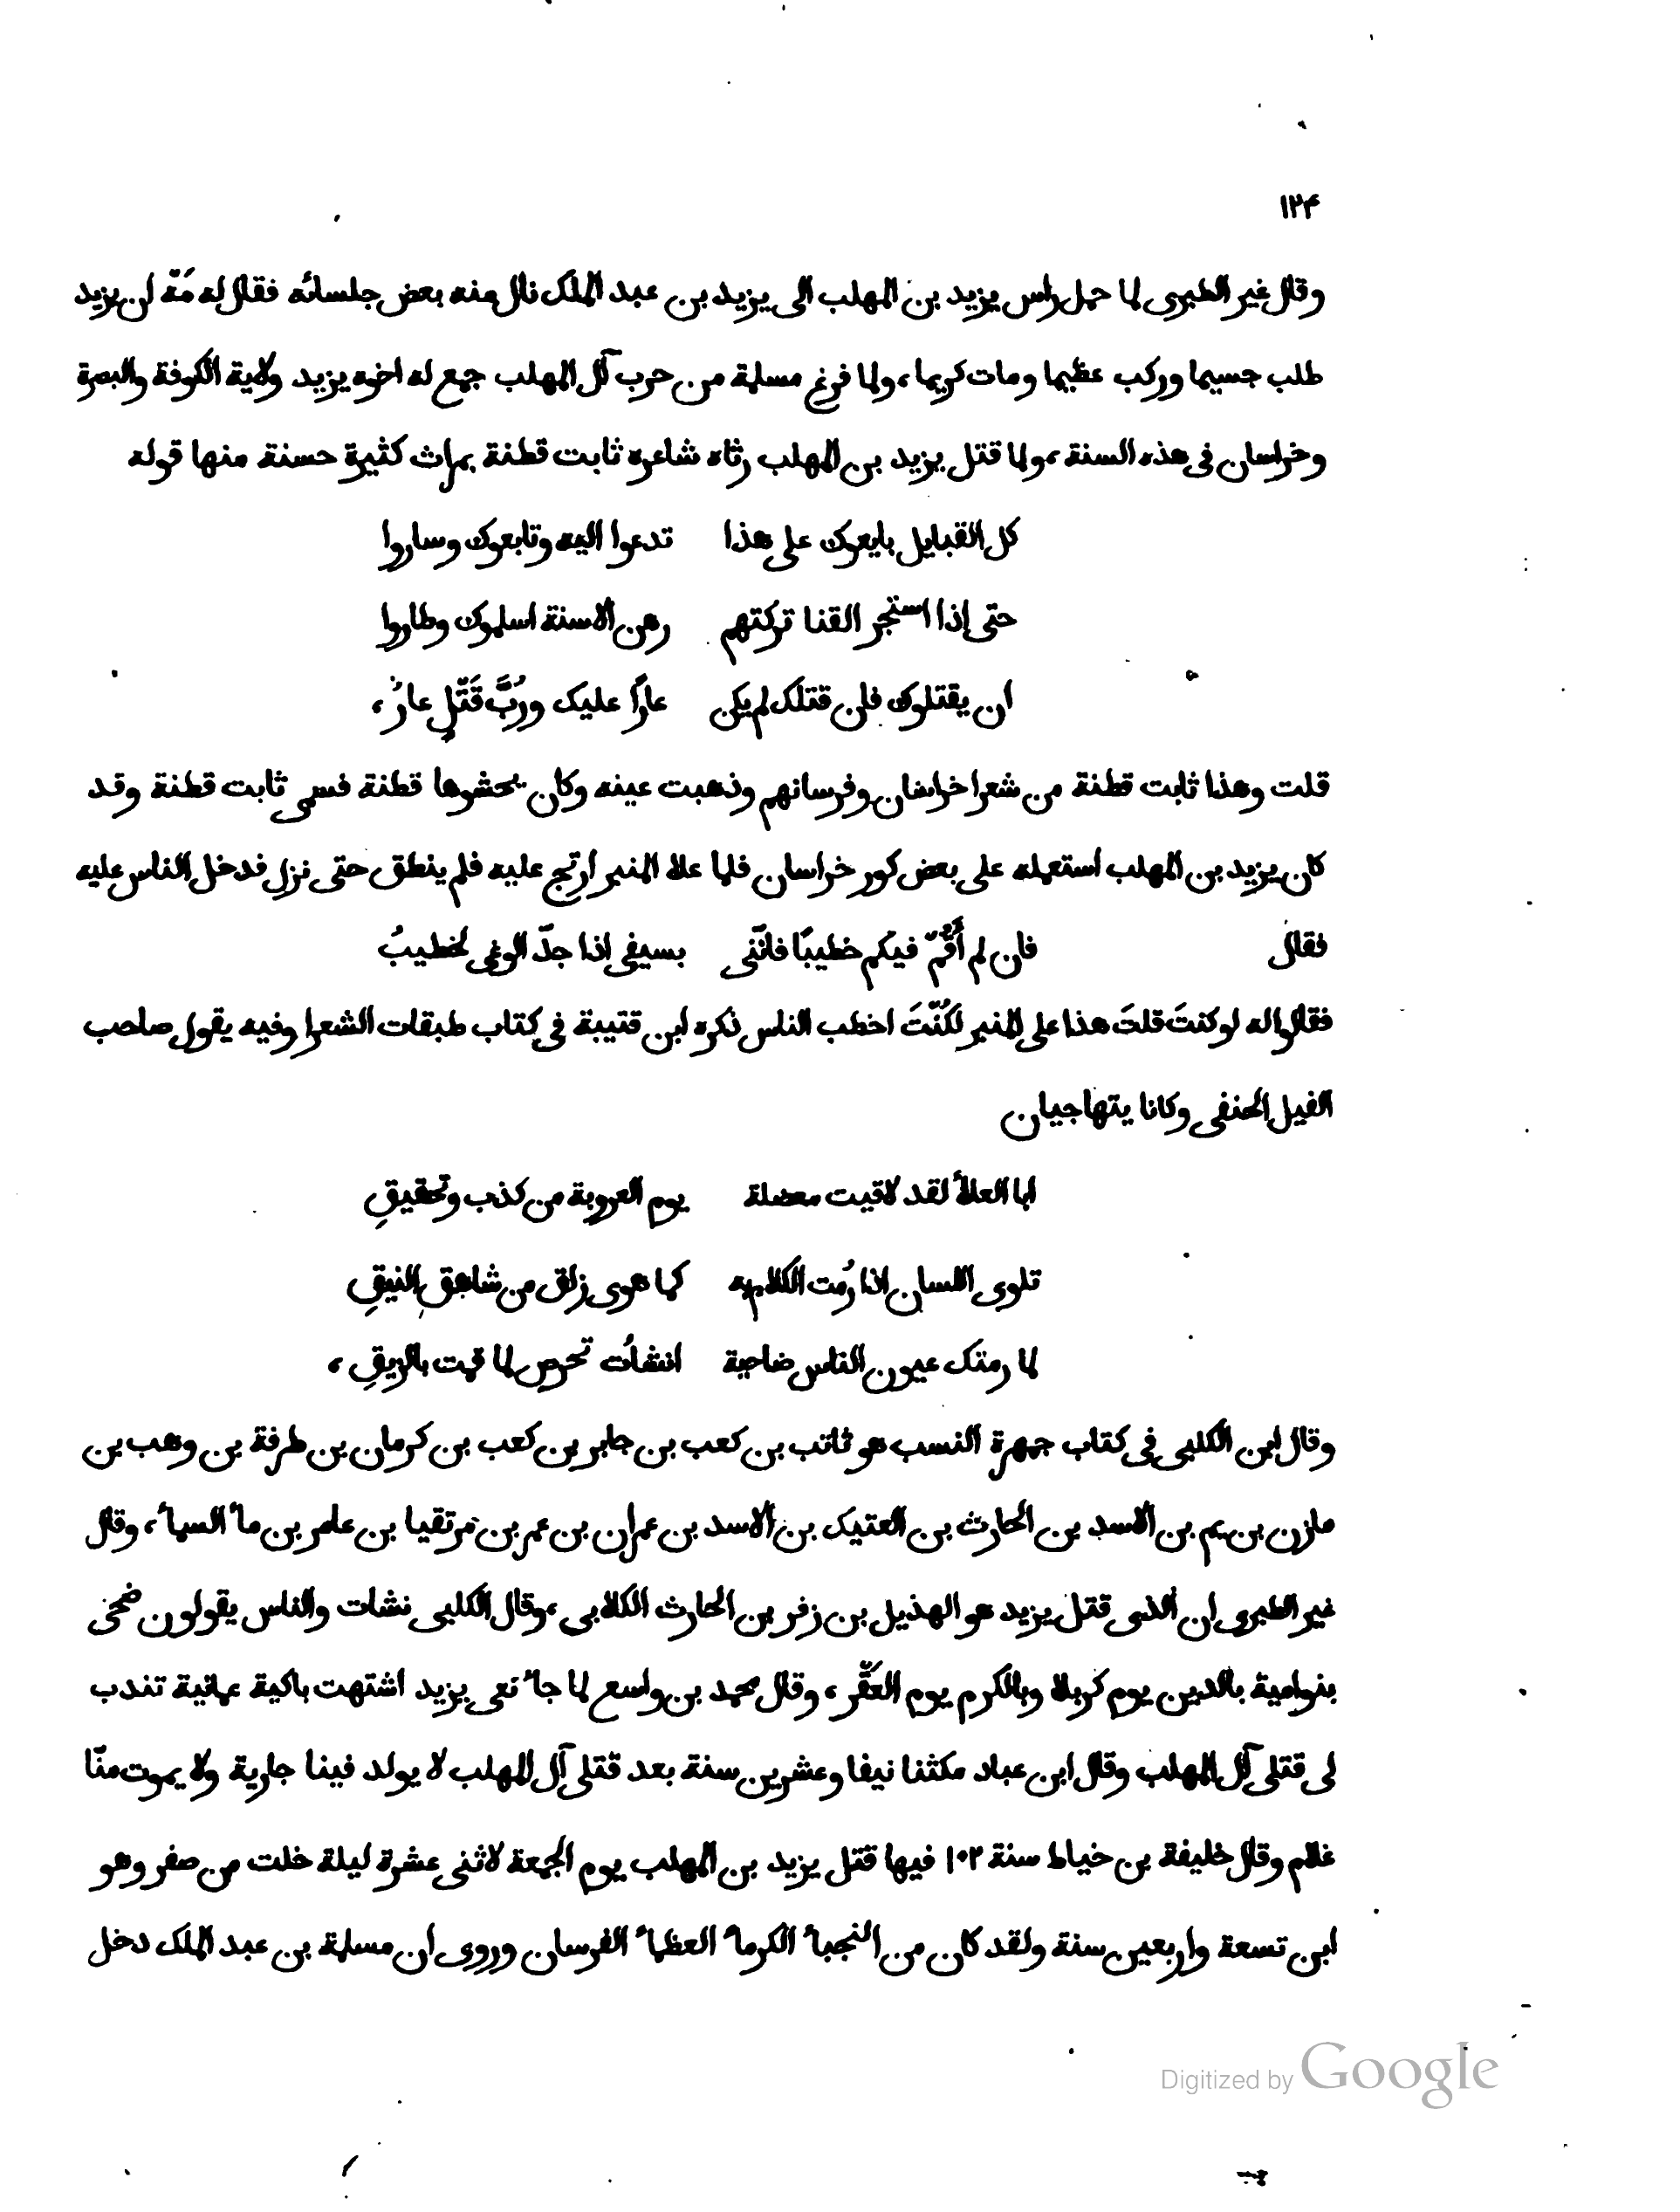 ١٢۴
وقال غير الطبرى لما حمل راس يزيد بن المهلب الى يزيد بن عبد الملك نال منه بعض جلسائه فقال له مَهْ ان يزيد
طلب جسيما وركب عظيما ومات كريما، ولما فرغ مسلمة من حرب آل المهلب جمع له اخوه يزيد ولاية الكوفة والبصرة
وخراسان فى هذه السنة، ولما قتل يزيد بن المهلب رثاه شاعره ثابت قطنة بمراث كثيرة حسنة منها قوله
كل القبايل بايعوك على هذا تدعوا اليه وتابعوك وساروا
حتى إذا استجر القنا تركتهم رهن الاسنة اسلموك وطاروا
ان يقتلوك فان قتلك لم يكن عارًا عليك ورُبَّ قَتْلٍ عارُ،
قلت وهذا ثابت قطنة من شعرا خراسان وفرسانهم وذهبت عينه وكان يحشوها قطنة فسمى ثابت قطنة وقد
كان يزيد بن المهلب استعمله على بعض كور خراسان فلما علا المنبر ارتج عليه فلم ينطق حتى نزل فدخل الناس عليه
فقال فان لم أَقُمْ فيكم خطيبًا فانّنى بسيفى اذا جدّ الوغى لخطيبُ
فقالوا له لو كنتَ قلتَ هذا على المنبر لَكُنْتَ اخطب الناس ذكره ابن قتيبة فى كتاب طبقات الشعرا وفيه يقول صاحب
الفيل الحنفى وكانا يتهاجيان
ابا العلأ لقد لاقيت معضلة يوم العروبة من كذب وتحقيقِ
تلوى اللسان اذا رُمت الكلام به كما هوى زلق من شاهق النيقِ
لما رمتك عيون الناس ضاحية انشأت تحرص لما قمت بالريقِ،
وقال ابن الكلبى فى كتاب جمهرة النسب هو ثابت بن كعب بن جابر بن كعب بن كرمان بن طرفة بن وهب بن
مازن بن يم بن الاسد بن الحارث بن العتيك بن الاسد بن عمران بن عمر بن مرتقيا بن عامر بن مأ السمأ، وقال
غير الطبرى ان الذى قتل يزيد هو الهذيل بن زفر بن الحارث الكلابى، وقال الكلبى نشات والناس يقولون ضحى
بنو امية بالدين يوم كربلا وبالكرم يوم العَقْر، وقال محمد بن واسع لما جأ نعى يزيد اشتهت باكية عمانية تندب
لى قتلى آل المهلب وقال ابن عباد مكثنا نيفا وعشرين سنة بعد قتلى آل المهلب لا يولد فينا جارية ولا يموت منّا
غلام وقال خليفة بن خياط سنة ١٠٢ فيها قتل يزيد بن المهلب يوم الجمعة لاثنى عشرة ليلة خلت من صفر وهو
ابن تسعة واربعين سنة ولقد كان من النجبأ الكرمأ العظمأ الفرسان وروى ان مسلمة بن عبد الملك دخل
Digitized by Google